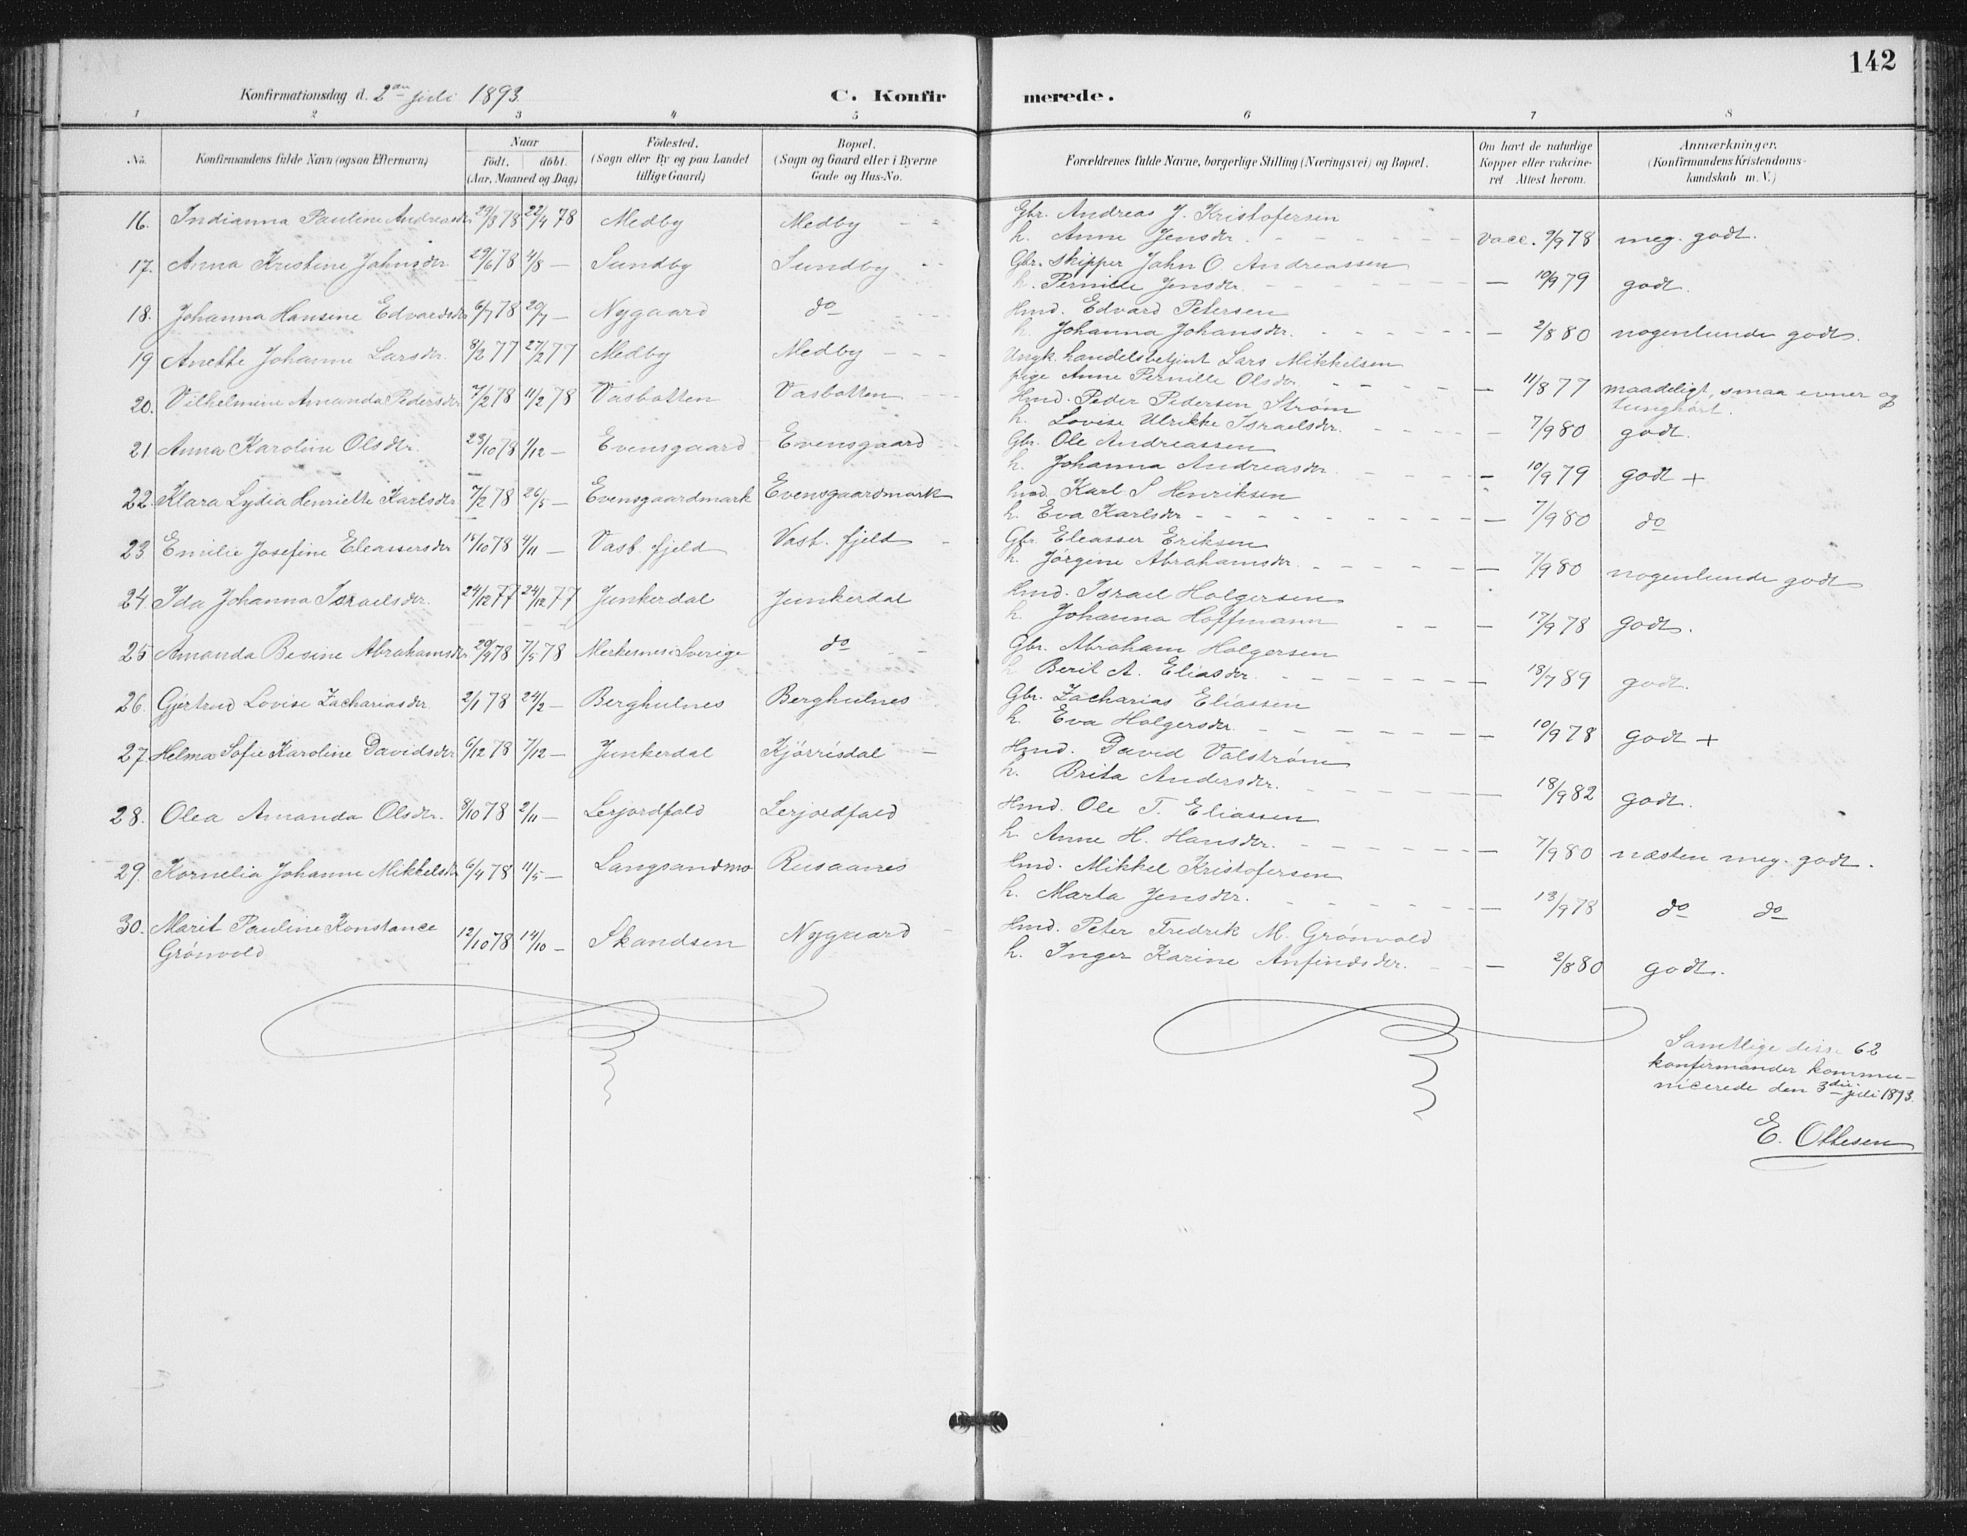 142
Konfirmationsdag d. 2den juli 1893. C. Konfirmerede.
1 2 3 4 5 6 7 8
No. Konfirmandens fulde Navn (ogsaa Efternavn) Naar födt. döbt. (Aar, Maaned og Dag) Födested. (Sogn eller By og paa Landet tillige Gaard) Bopæl. (Sogn og Gaard eller i Byerne Gade og Hus-No. Forældrenes fulde Navne, borgerlige Stilling (Næringsvei) og Bopæl. Om havt de naturlige Kopper eller vakcineret Attest herom. Anmærkninger. (Konfirmandens Kristendomskundskab m. V.)
16. Indianna Pauline Andreasdtr 29/3 78 22/4 78 Medby Medby Gbr. Andreas J. Kristofersen
h. Anne Jensdtr. Vacc. 9/9 78 meg. godt.
17. Anna Kristine Jahnsdtr. 29/6 78 4/8 — Sundby Sundby Gbr. skipper Jahn O Andreassen
h. Pernille Jensdtr. — 10/9 79 godt.
18. Johanna Hansine Edvardsdtr 6/7 78 20/7 — Nygaard do Hmd. Edvard Petersen
h. Johanna Johansdtr. — 2/8 80 nogenlunde godt.
19 Anette Johanne Larsdtr. 8/2 77 27/2 77 Medby Medby Ungk. handelsbetjent Lars Mikkelsen
pige Anne Pernille Olsdtr — 11/8 77 maadeligt, smaa evner og tunghørt.
20. Vilhelmine Amanda Pedersdtr 7/2 78 11/2 78 Vasbotten Vasbotten Hmd. Peder Pedersen Strøm
h. Lovise Ulrikke Israelsdtr. — 7/9 80 godt.
21. Anna Karoline Olsdtr. 23/10 78 1/12 — Evensgaard Evensgaard Gbr. Ole Andreassen
h. Johanna Andreasdtr. — 10/9 79 godt +
22. Klara Lydia Henriette Karlsdtr 7/2 78 26/5 — Evensgaardmark Evensgaardmark Hmd. Karl S Henriksen
h. Eva Karlsdtr — 7/9 80 do
23 Emilie Josefine Eleassersdtr 15/10 78 4/11 — Vasb. fjeld Vasb. fjeld Gbr. Eleasser Eriksen
h. Jørgine Abrahamsdtr. — 7/9 80 nogenlunde godt
24. Ida Johanna Israelsdtr. 24/12 77 24/12 77 Junkerdal Junkerdal Hmd. Israel Holgersen
h. Johanna Hoffmann — 17/9 78 godt.
25 Amanda Besine Abrahamsdtr 78 7/5 78 Merkesnes i Sverige do Gbr. Abraham Holgersen
h. Berit A. Eliasdtr. — 18/7 89 godt.
26. Gjertrud Lovise Zachariasdtr 2/1 78 24/2 — Berghulnes Berghulnes Gbr. Zacharias Eliassen
h. Eva Holgersdtr. — 10/9 78 godt +
27. Helma Sofie Karoline Davidsdtr 6/12 78 7/12 — Junkerdal Kjørrisdal Hmd. David Valstrøm
h. Brita Andersdtr. — 18/9 82 godt.
28. Olea Amanda Olsdtr. 8/10 78 2/11 — Lerjordfald Lerjordfald Hmd. Ole T. Eliassen
h. Anne H. Hansdtr. — 7/9 80 næsten meg. godt.
29. Kornelia Johanne Mikkelsdtr 6/4 78 11/5 — Langsandmo Rusaanes Hmd. Mikkel Kristofersen
h. Marta Jensdtr. — 13/9 78 do do
30. Marit Pauline Konstance Grönvold 12/10 78 14/10 — Skandsen Nygaard Hmd. Peter Fredrik M. Grönvold
h. Inger Karine Anfindsdtr. — 2/8 80 godt.
Samtlige disse 62
konfirmander kommu-
nicerede den 3die juli 1893.
E. Ottesen